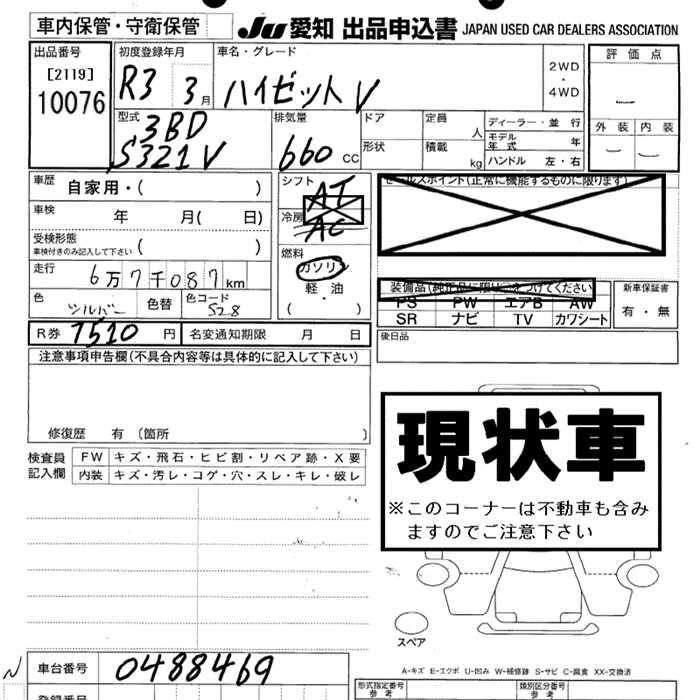 車内保管・守衛保管 JU 愛知 出品申込書 JAPAN USED CAR DEALERS ASSOCIATION
出品番号 [2119] 10076
初度登録年月 R3 3月
車名・グレード ハイゼットV
2WD・4WD
評価点 —
外装 — 内装 —
型式 3BD S321V
排気量 660cc
ドア
形状
定員 人
積載 kg
ディーラー・並行
モデル年式 年
ハンドル 左・右
車歴 自家用・( )
車検 年 月( 日)
受検形態 車検付きのみ記入して下さい ( )
走行 6万7千087km
色 シルバー 色替 色コード S28
シフト AT
冷房 AC
燃料 ガソリン 軽・油 ( )
セールスポイント(正常に機能するものに限ります)
装備品(純正品に限り○をつけてください)
PS PW エアB AW
SR ナビ TV カワシート
新車保証書 有・無
後日品
R券 7510円 名変通知期限 月 日
注意事項申告欄(不具合内容等は具体的に記入して下さい)
修復歴 有〔箇所 〕
検査員記入欄
FW キズ・飛石・ヒビ割・リペア跡・X要
内装 キズ・汚レ・コゲ・穴・スレ・キレ・破レ
現状車
※このコーナーは不動車も含み
ますのでご注意下さい
スペア
A-キズ E-エクボ U-凹み W-補修跡 S-サビ C-腐食 XX-交換済
車台番号 0488469
登録番号
形式指定番号 参考
類別区分番号 参考